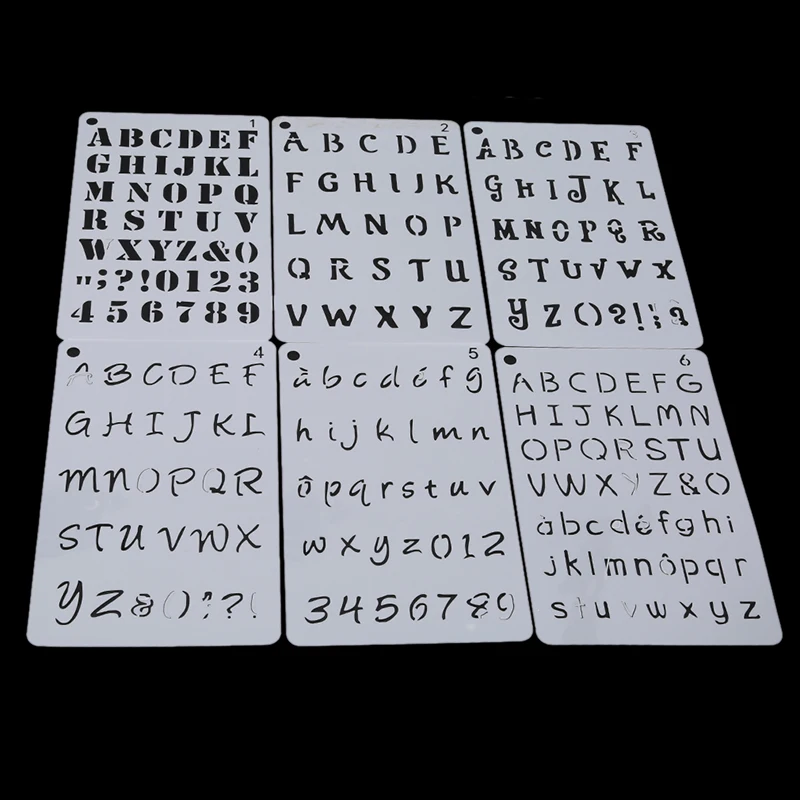 1
ABCDEF
GHIJKL
MNOPQ
RSTUV
WXYZ&()
";?!0123
456789
2
ABCDE
FGHIJK
LMNOP
QRSTU
VWXYZ
3
ABCDEF
GHIJKL
MNOPQR
STUVWX
YZ()?!;
4
ABCDEF
GHIJKL
MNOPQR
STUVWX
YZ&();?!
5
àbcdéfg
hijklmn
ôpqrstuv
wxyz012
3456789
6
ABCDEFG
HIJKLMN
OPQRSTU
VWXYZ&()
àbcdéfghi
jklmnôpqr
stuvwxyz